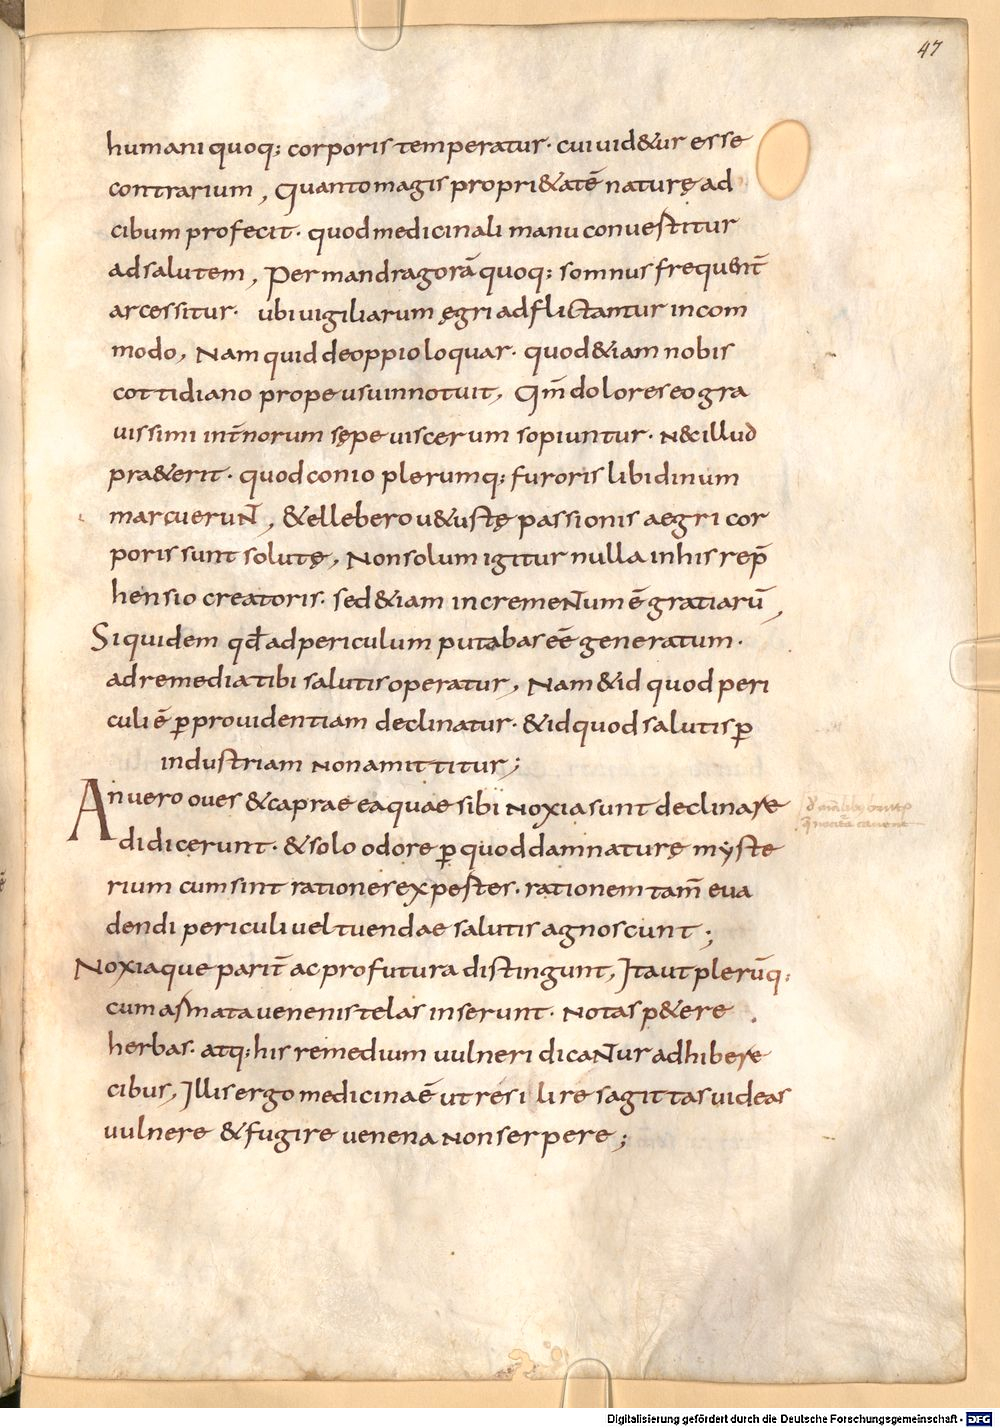 47
humani quoq; corporis temperatur· cui uid&ur esse
contrarium, Quanto magis propri&atē naturę ad
cibum profecit· quod medicinali manu conuestitur
ad salutem, Per mandragorā quoq; somnus frequent̄
arcessitur· ubi uigiliarum ęgri adflictantur incom
modo, Nam quid de oppio loquar· quod &iam nobis
cottidiano prope usu innotuit, Qm̄ dolores eo gra
uissimi int̄norum sępe uiscerum sopiuntur· N&illud
pra&erit· quod conio plerumq; furoris libidinum
marcuerunt, & ellebero u&ustę passionis aegri cor
poris sunt solutę, Non solum igitur nulla in his rep̄
hensio creatoris· sed &iam incrementum ē gratiarū,
Siquidem qđ ad periculum putabas eē generatum·
ad remedia tibi salutis operatur, Nam & id quod peri
culi ē ꝑ prouidentiam declinatur· & id quod salutis ꝑ
industriam non amittitur;
An uero oues & caprae ea quae sibi noxia sunt declinare
didicerunt· & solo odore ꝑ quoddam naturę myste
rium cum sint rationes expestes· rationem tam̄ eua
dendi periculi uel tuendae salutis agnoscunt;
Noxiaque parit̄ ac profutura distingunt, Ita ut plerūq;
cum armata uenenis telas inserunt· Notas p&ere
herbas· atq; his remedium uulneri dicantur adhibere
cibus, Illis ergo medicina ē ut resilire sagittas uideas
uulnere & fugire uenena non serpere;
Digitalisierung gefördert durch die Deutsche Forschungsgemeinschaft - DFG